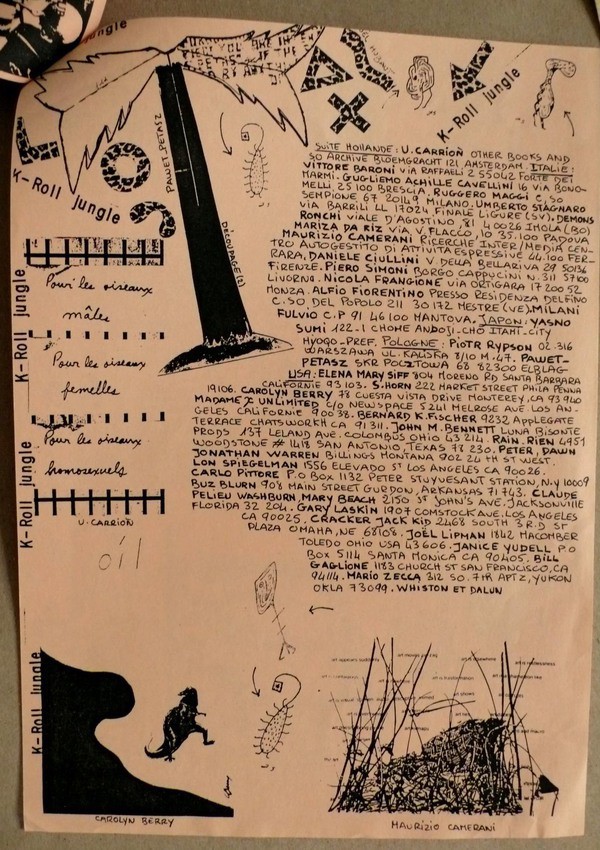 K-Roll jungle
K-Roll jungle
PAWET.PETASZ
DÉCOUPAGE(S)
K-Roll jungle
Pour les oiseaux
mâles
Pour les oiseaux
femelles
Pour les oiseaux
homosexuels
U. CARRION
K-Roll jungle
K-Roll jungle
SUITE HOLLANDE: U. CARRION OTHER BOOKS AND
SO ARCHIVE BLOEMGRACHT 121 AMSTERDAM. ITALIE:
VITTORE BARONI VIA RAFFAELLI 2 55042 FORTE DEI
MARMI. GUGLIEMO ACHILLE CAVELLINI 16 VIA BONO-
MELLI 25100 BRESCIA. RUGGERO MAGGI C.SO
SEMPIONE 67 20149 MILANO. UMBERTO STAGNARO
VIA BARRILI 12 17024 FINALE LIGURE (SV). DEMOS
RONCHI VIALE D'AGOSTINO, 81 40026 IMOLA (BO)
MARIZA DA RIZ VIA V. FLACCO, 10 35.100 PADOVA
MAURIZIO CAMERANI RICERCHE INTER/MEDIA CEN-
TRO AUTOGESTITO DI ATTIVITA ESPRESSIVE 44.100 FER-
RARA. DANIELE CIULLINI V. DELLA BELLARIVA 29 50136
FIRENZE. PIERO SIMONI BORGO CAPPUCINI N.311 57100
LIVORNO. NICOLA FRANGIONE VIA ORTIGARA 17 200 52
MONZA. ALFIO FIORENTINO PRESSO RESIDENZA DELFINO
C.SO DEL POPOLO 211 30 172 MESTRE (VE). MILANI
FULVIO C.P 91 46 100 MANTOVA. JAPON: YASNO
SUMI 122-1 CHOME ANDOJI-CHO ITAMI-CITY
HYOGO-PREF. POLOGNE: PIOTR RYPSON 02.316
WARSZAWA UL. KALISKA 8/10 M.47. PAWET-
PETASZ SKR POCZTOWA 68 82300 ELBLAG
USA: ELENA MARY SIFF 804 MORENO RD SANTA BARBARA
CALIFORNIE 93103. S.HORN 222 MARKET STREET PHILA PENNA
19106. CAROLYN BERRY 78 CUESTA VISTA DRIVE MONTEREY, CA 93940
MADAME X UNLIMITED C/O NEWSPACE 5241 MELROSE AVE. LOS AN-
GELES CALIFORNIE 90038. BERNARD K. FISCHER 9232 APPLEGATE
TERRACE CHATSWORTH CA 91311. JOHN M. BENNETT LUNA BISONTE
PRODS 137 LELAND AVE. COLOMBUS OHIO 43214. RAIN. RIEN 4951
WOODSTONE # 148 SAN ANTONIO, TEXAS 78 230. PETER, DAWN
JONATHAN WARREN BILLINGS MONTANA 902 24 TH ST WEST.
LON SPIEGELMAN 1556 ELEVADO ST LOS ANGELES CA 90026.
CARLO PITTORE P.O BOX 1132 PETER STUYVESANT STATION, N.Y 10009
BUZ BLURN 908 MAIN STREET GURDON, ARKANSAS 71743. CLAUDE
PELIEU WASHBURN, MARY BEACH 2150 ST JOHN'S AVE. JACKSONVILLE
FLORIDA 32 204. GARY LASKIN 1907 COMSTOCK AVE. LOS ANGELES
CA 90025. CRACKER JACK KID 2468 SOUTH 3 R.D ST
PLAZA OMAHA, NE 68108. JOËL LIPMAN 1842 MACOMBER
TOLEDO OHIO USA 43606. JANICE YUDELL P.O
BOX 5114 SANTA MONICA CA 90405. BILL
GAGLIONE 1183 CHURCH ST SAN FRANCISCO, CA
94114. MARIO ZECCA 312 SO. 7TH APTZ, YUKON
OKLA 73099. WHISTON ET DALUN
K-Roll jungle
CAROLYN BERRY
MAURIZIO CAMERANI